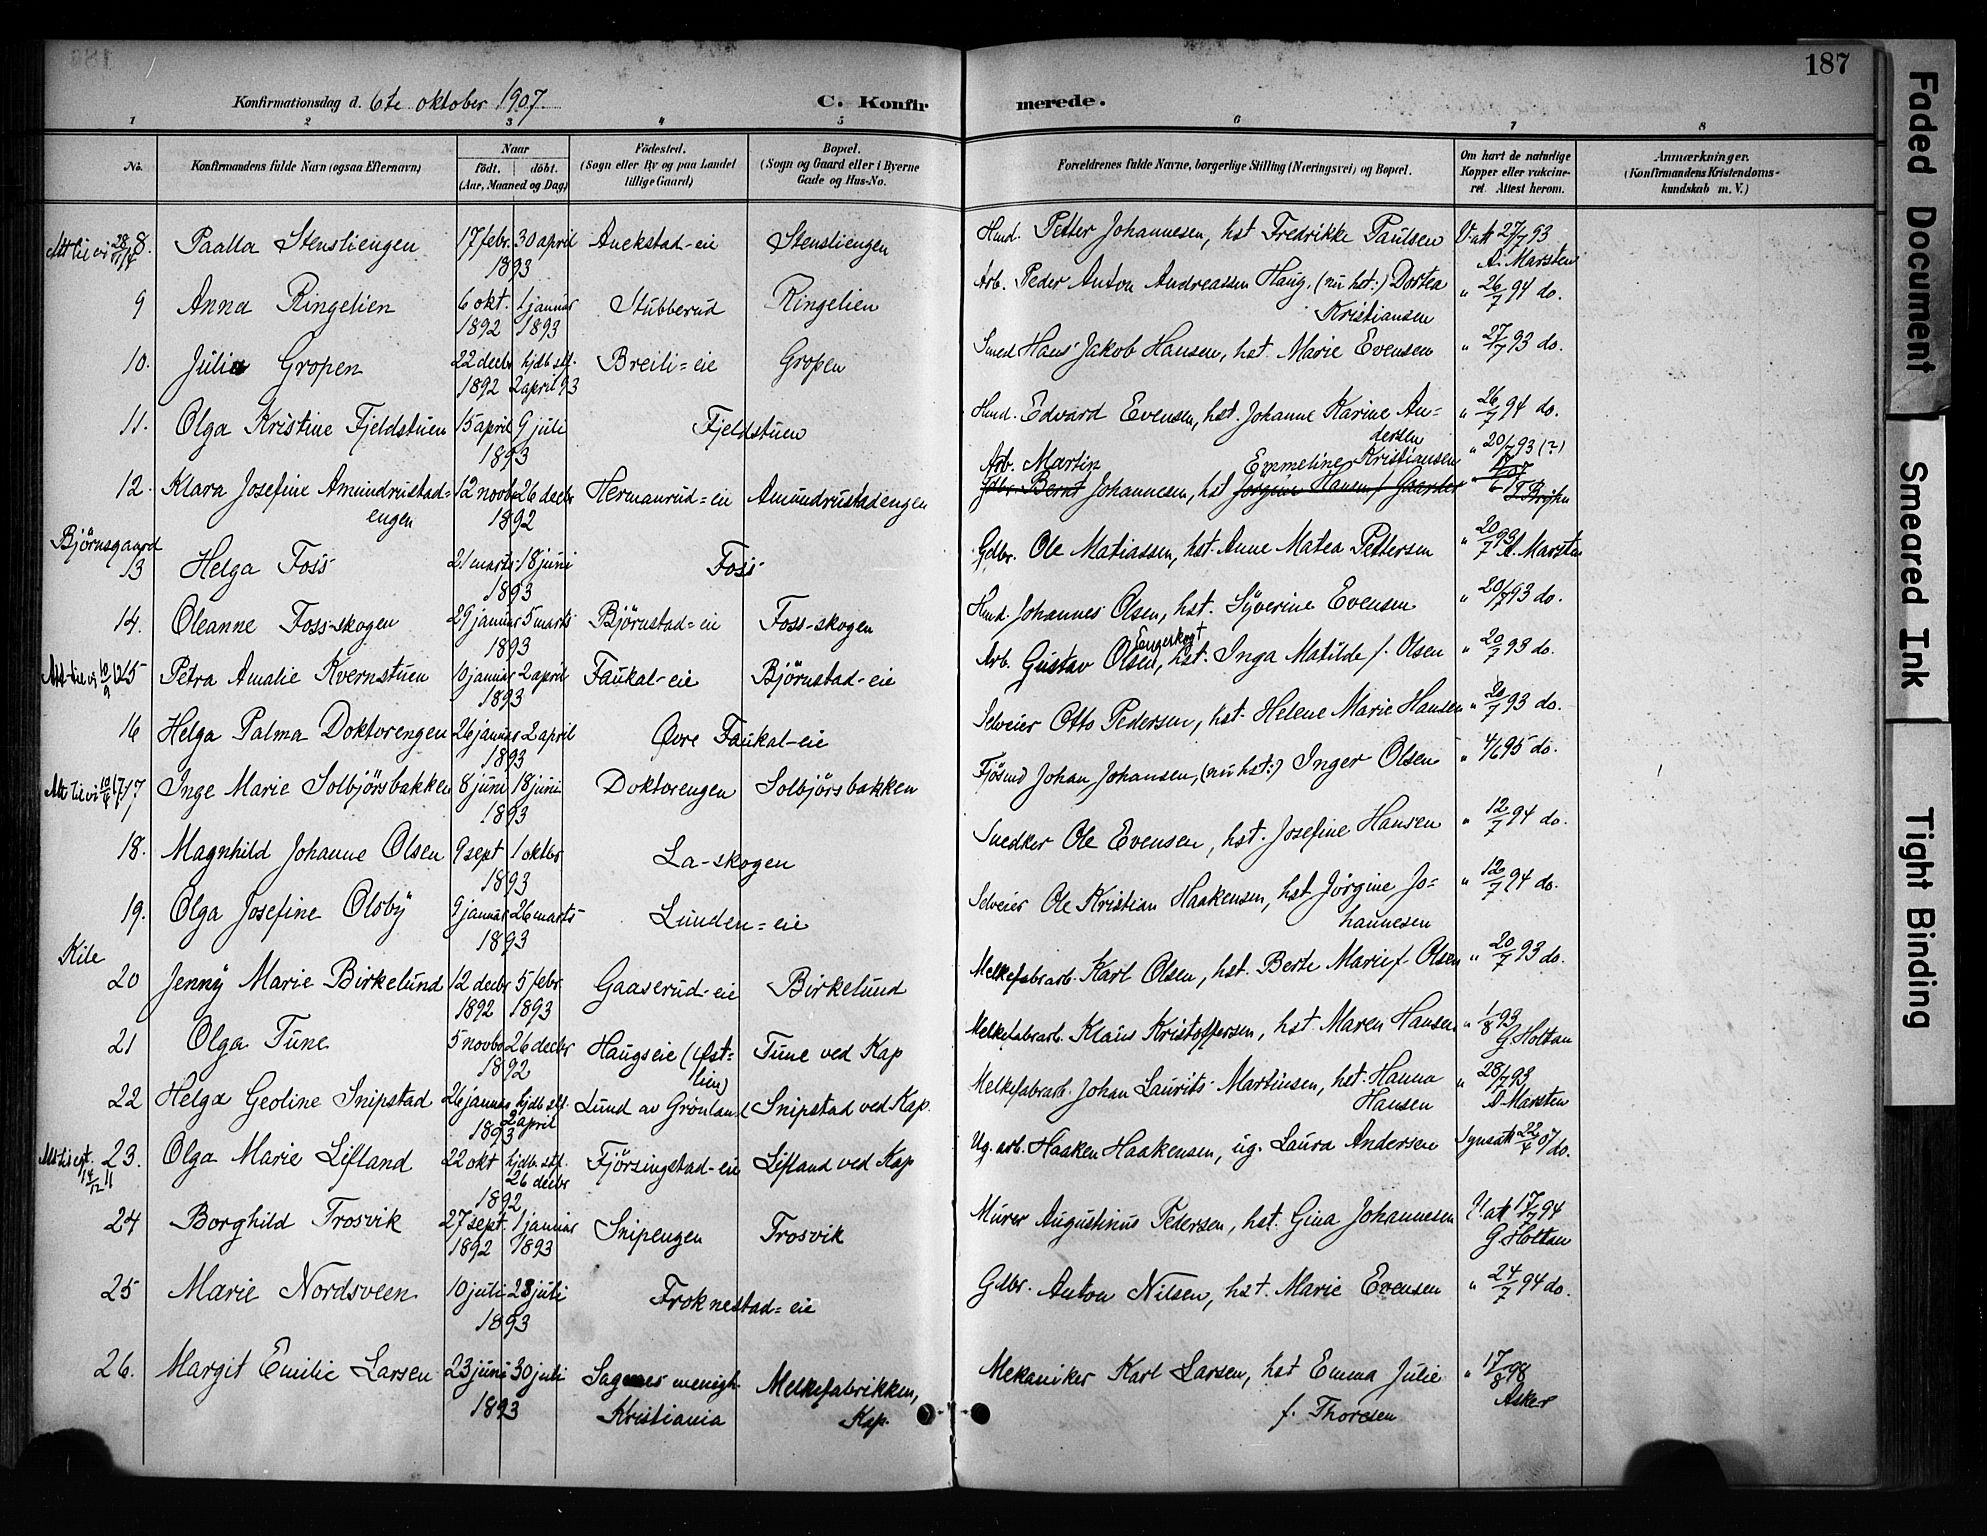 187
Konfirmationsdag d. 6te oktober 1907.
C. Konfirmerede.
1 2 3 4 5 6 7 8
No. Konfirmandens fulde Navn (ogsaa Efternavn) Naar födt. döbt. (Aar, Maaned og Dag) Födested. (Sogn eller By og paa Landet tillige Gaard) Bopæl. (Sogn og Gaard eller i Byerne Gade og Hus-No. Forældrenes fulde Navne, borgerlige Stilling (Næringsvei) og Bopæl. Om havt de naturlige Kopper eller vakcineret. Attest herom. Anmærkninger. (Konfirmandens Kristendomskundskab m. V.)
8. Paalla Stensliengen 17 febr. 30 april 1893 Anekstad-eie Stensliengen Hmd. Petter Johannesen, hst Fredrikke Paulsen V. att 27/7 93 A. Marsten
9 Anna Ringelien 6 okt. 1892 1 januar 1893 Stubberud Ringelien Arb. Peder Anton Andreassen Haug, (nu hst:) Dortea Kristiansen " 26/7 94 do.
10. Julia Gropen 22 decbr 1892 hjdb. stf. 2 april 93 Breili=eie Gropen Smed Hans Jakob Hansen, hst. Marie Evensen " 27/7 93 do.
11. Olga Kristine Fjeldstuen 15 april 9 juli 1893 Fjeldstuen Hmd. Edvard Evensen, hst. Johanne Karine Andersen " 26/7 94 do.
12. Klara Josefine Amundrustadengen 12 novbr 26 decbr 1892 Hermanrud=eie Amundrustadengen Arb. Martin Gdbr. Bernt Johannesen, hst Emmeline Kristiansen Jorgine Hansen " 20/7 93 (?)
Björnsgaard
13 Helga Foss 21 marts 18 juni 1893 Foss Gdbr. Ole Matiassen, hst. Anne Matea Pettersen " 20/7 93 A. Marsten
14. Oleanne Foss-skogen 29 januar 5 marts 1893 Björnstad=eie Foss-skogen Hmd. Johannes Olsen, hst. Syverine Evensen " 20/7 93 do.
15 Petra Amalie Kvernstuen 10 januar 2 april 1893 Faukal-eie Björnstad-eie Arb. Gustav Olsen, hst. Inga Matilde f. Olsen " 20/7 93 do.
16 Helga Palma Doktorengen 26 januar 2 april 1893 Øvre Faukal-eie Selveier Otto Pedersen, hst. Helene Marie Hansen " 20/7 93 do.
17 Inge Marie Solbjörsbakken 8 juni 18 juni 1893 Doktorengen Solbjörsbakken Fjösmd Johan Johansen, (nu hst:) Inger Olsen " 4/6 95 do.
18. Magnhild Johanne Olsen 9 sept 1 oktbr 1893 La-skogen Snedker Ole Evensen, hst. Josefine Hansen " 12/7 94 do.
19. Olga Josefine Olsby 9 januar 26 marts 1893 Lunden=eie Selveier Ole Kristian Haakensen, hst Jörgine Johannesen " 12/7 94 do.
Kile
20 Jenny Marie Birkelund 12 decbr 1892 5 febr. 1893 Gaaserud-eie Birkelund Melkefabrarb. Karl Olsen, hst. Berte Marie f. Olsen " 20/7 93 do.
21 Olga Tune 5 novbr 26 decbr 1892 Haugseie (Østlien) Tune ved Kap Melkefabrarb. Klaus Kristoffersen, hst. Maren Hansen " 1/8 93 G. Holtan
22 Helga Geoline Snipstad 26 januar hjdb. stf. 2 april 1893 Lund av Grönland Snipstad ved Kap. Melkefabrarb. Johan Laurits Martinsen, hst. Hanna Hansen " 28/7 93 A. Marsten
23. Olga Marie Lifland 22 okt hjdb. stf. 26 decbr 1892 Fjörsingstad-eie Lifland ved Kap Ug. arb. Haaken Haakensen, ug. Laura Andersen Synsatt 22/4 07 do.
24 Borghild Trosvik 27 sept. 1892 1 januar 1893 Snipengen Trosvik Murer Augustinus Pedersen, hst. Gina Johannesen V. att 17/7 94 G. Holtan
25 Marie Nordsveen 10 juli 23 juli 1893 Froknestad=eie Gdbr. Anton Nilsen, hst. Marie Evensen " 24/7 94 do.
26. Margit Emilie Larsen 23 juni 30 juli 1893 Sagenes menigh. Kristiania Melkefabrikken, Kap. Mekaniker Karl Larsen, hst Emma Julie f. Thoresen " 17/8 98 Asker
Faded Document
Smeared Ink
Tight Binding